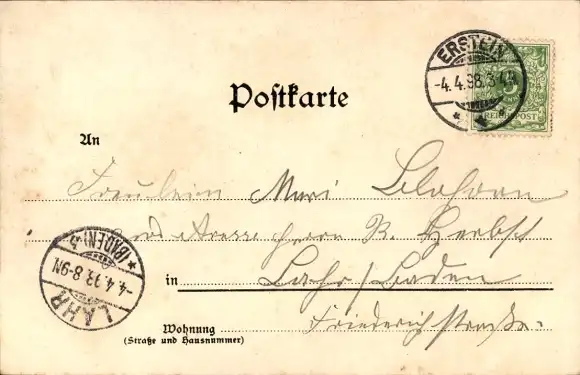 ERSTEIN
-4.4.98.3-4N
5
REICHSPOST
Postkarte
An
Fräulein Mari
Adresse Herrn B. Herbst
in Lahr/Baden
Friedrichstraße.
Wohnung
(Straße und Hausnummer)
LAHR
-4.4.98.8-9N
* (BADEN) 5